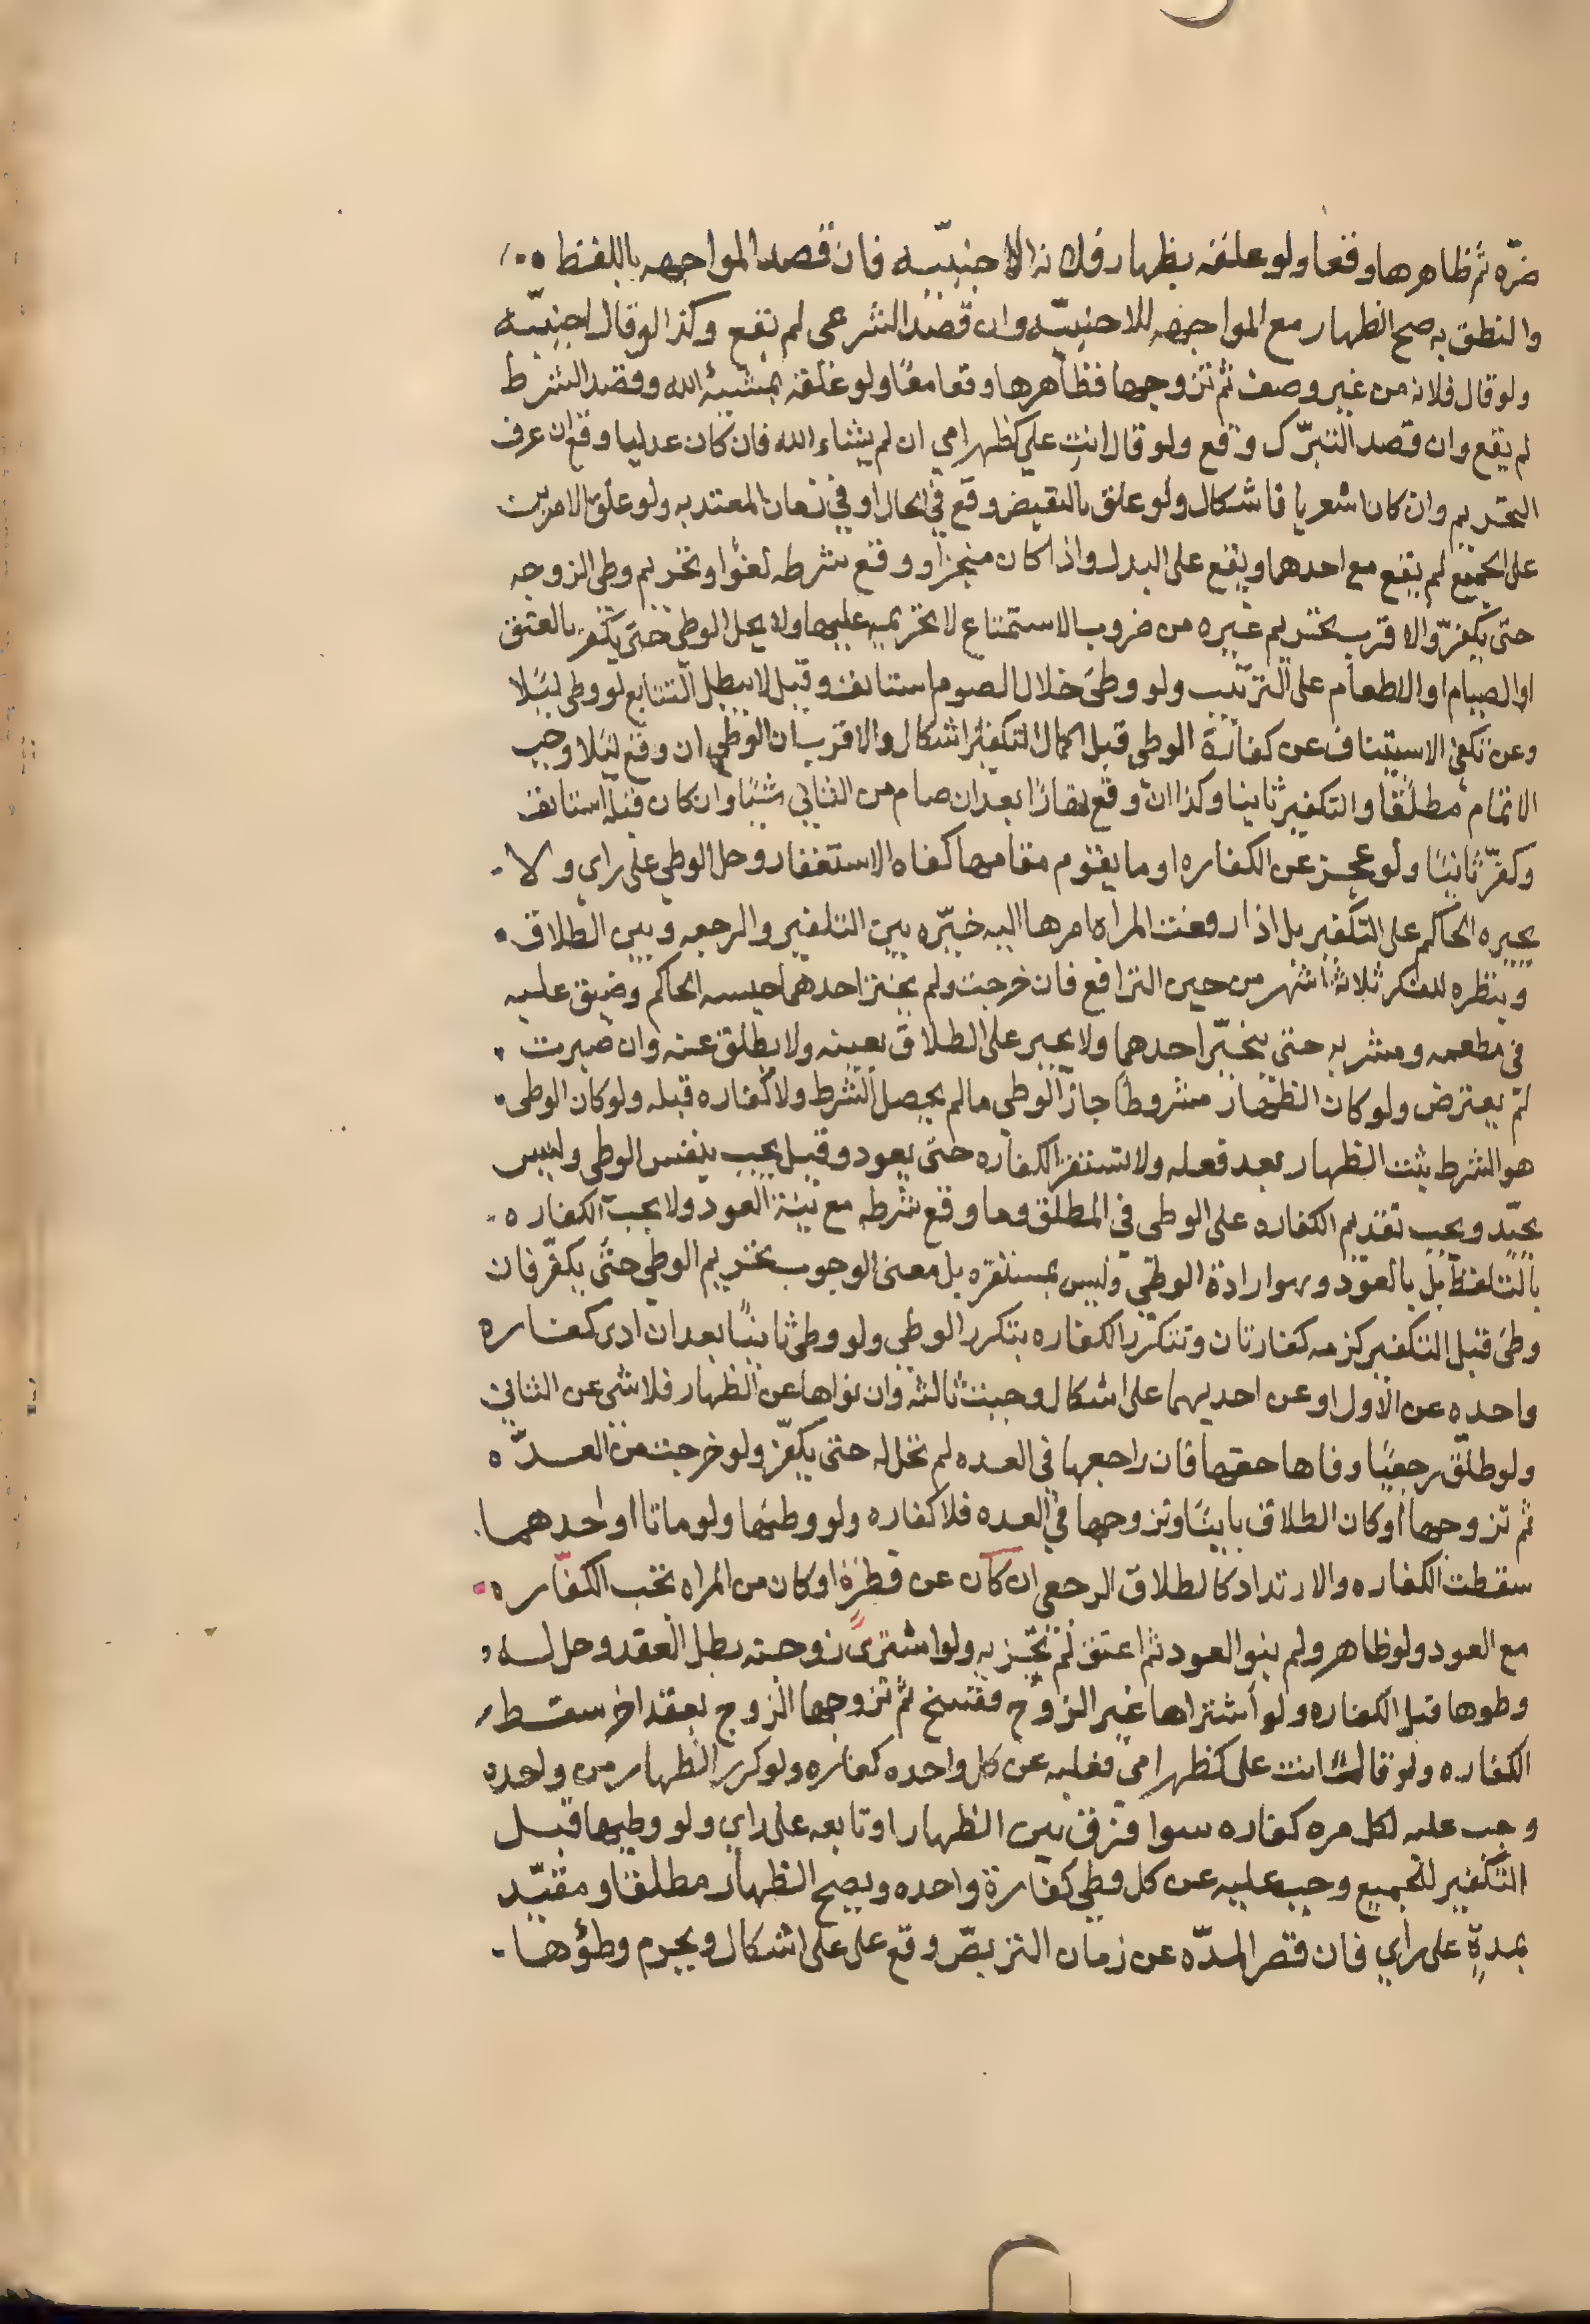 ضرّه ثم ظاهرها وقعا ولو علقه بظهار فلانه الاجنبيّه فان قصد المواجهه باللفظ
والنطق به صح الظهار مع المواجهه للاجنبيّه وان قصد الشرعى لم يقع وكذا لو قال اجنبيّه
ولو قال فلانه من غير وصف ثم تزوجها فظاهرها وقعا معًا ولو علقه بمشيئة الله وقصد الشرط
لم يقع وان قصد التبرّك وقع ولو قال انتِ علي كظهر امي ان لم يشاء الله فان كان عدليا وقع ان عرف
التحريم وان كان اشعريا فاشكال ولو علق بالنقيض وقع في الحال او في زمان المعتد به ولو علق الامرين
على الجميع لم يقع مع احدهما ويقع على البدل واذا كان منجزًا او وقع شرطه لغوًا وتحريم وطى الزوجه
حتى يكفرّ والاقرب تحريم غيره من ضروب الاستمتاع لا تحريمه عليها ولا يحل الوطى حتى يكفر بالعتق
او الصيام او الاطعام على الترتيب ولو وطئ خلال الصوم استانف وقيل لا يبطل التتابع لو وطى ليلا
وعن تكفى الاستيناف عن كفارة الوطى قبل اكمال التكفير اشكال والاقرب ان الوطي ان وقع ليلا وجب
الاتمام مطلقًا والتكفير ثانيا وكذا ان وقع نهارًا بعد ان صام من الثاني شيئًا وان كان قبله استانف
وكفّر ثانيًا ولو عجز عن الكفاره او ما يقوم مقامها كفاه الاستغفار وحل الوطي على راي ولا
يجبره الحاكم على التكفير بل اذا رفعت المراه امرها اليه خيّره بين التكفير والرجعه وبين الطلاق
وينظره للفكر ثلاثة اشهر من حين الترافع فان خرجت ولم يختر احدهما حبسه الحاكم وضيق عليه
في مطعمه ومشربه حتى يتخيّر احدهما ولا يجبر على الطلاق بعينه ولا يطلق عنه وان صبرت
لم يعترض ولو كان الظهار مشروطًا جاز الوطي ما لم يحصل الشرط ولا كفاره قبله ولو كان الوطى
هو الشرط يثبت الظهار بعد فعله ولا تستقر الكفاره حتى يعود وقيل يجب بنفس الوطي وليس
بجيّد ويجب تقديم الكفاره على الوطى في المطلق وما وقع شرطه مع نية العود ولا يجب الكفاره
بالتلفظ بل بالعود وهو ارادة الوطي وليس بمستقره بل معنى الوجوب تحريم الوطي حتى يكفّر فان
وطى قبل التكفير لزمه كفارتان وتتكرّر الكفاره بتكرر الوطي ولو وطئ ثانيًا بعد ان ادى كفاره
واحده عن الاول او عن احديهما على اشكال وجبت ثالثه وان نواها عن الظهار فلا شى عن الثاني
ولو طلّق رجعيًا وفاها حقها فان راجعها في العده لم تحل له حتى يكفّر ولو خرجت من العدّه
ثم تزوجها او كان الطلاق باينًا وتزوجها في العده فلا كفاره ولو وطئها ولو ماتا او احدهما
سقطت الكفاره والارتداد كالطلاق الرجعى ان كان عن فطرةٍ او كان من المراه تجب الكفّاره
مع العود ولو ظاهر ولم ينو العود ثم اعتق لم تجز به ولو اشترىً زوجته بطل العقد وحل له
وطوها قبل الكفاره ولو اشتراها غير الزوج ففسخ ثم تزوجها الزوج بعقد اخر سقط
الكفاره ولو قال انت على كظهر امي فعليه عن كل واحده كفاره ولو كرر الظهار من واحده
وجب عليه لكل مره كفاره سوا فرق بين الظهار او تابعه على راي ولو وطيها قبل
التكفير للجميع وجب عليه عن كل وطي كفارة واحده ويصح الظهار مطلقا ومقيّد
بمدةٍ على راي فان قصر المدّه عن زمان التربصّ وقع على على اشكال ويحرم وطؤها